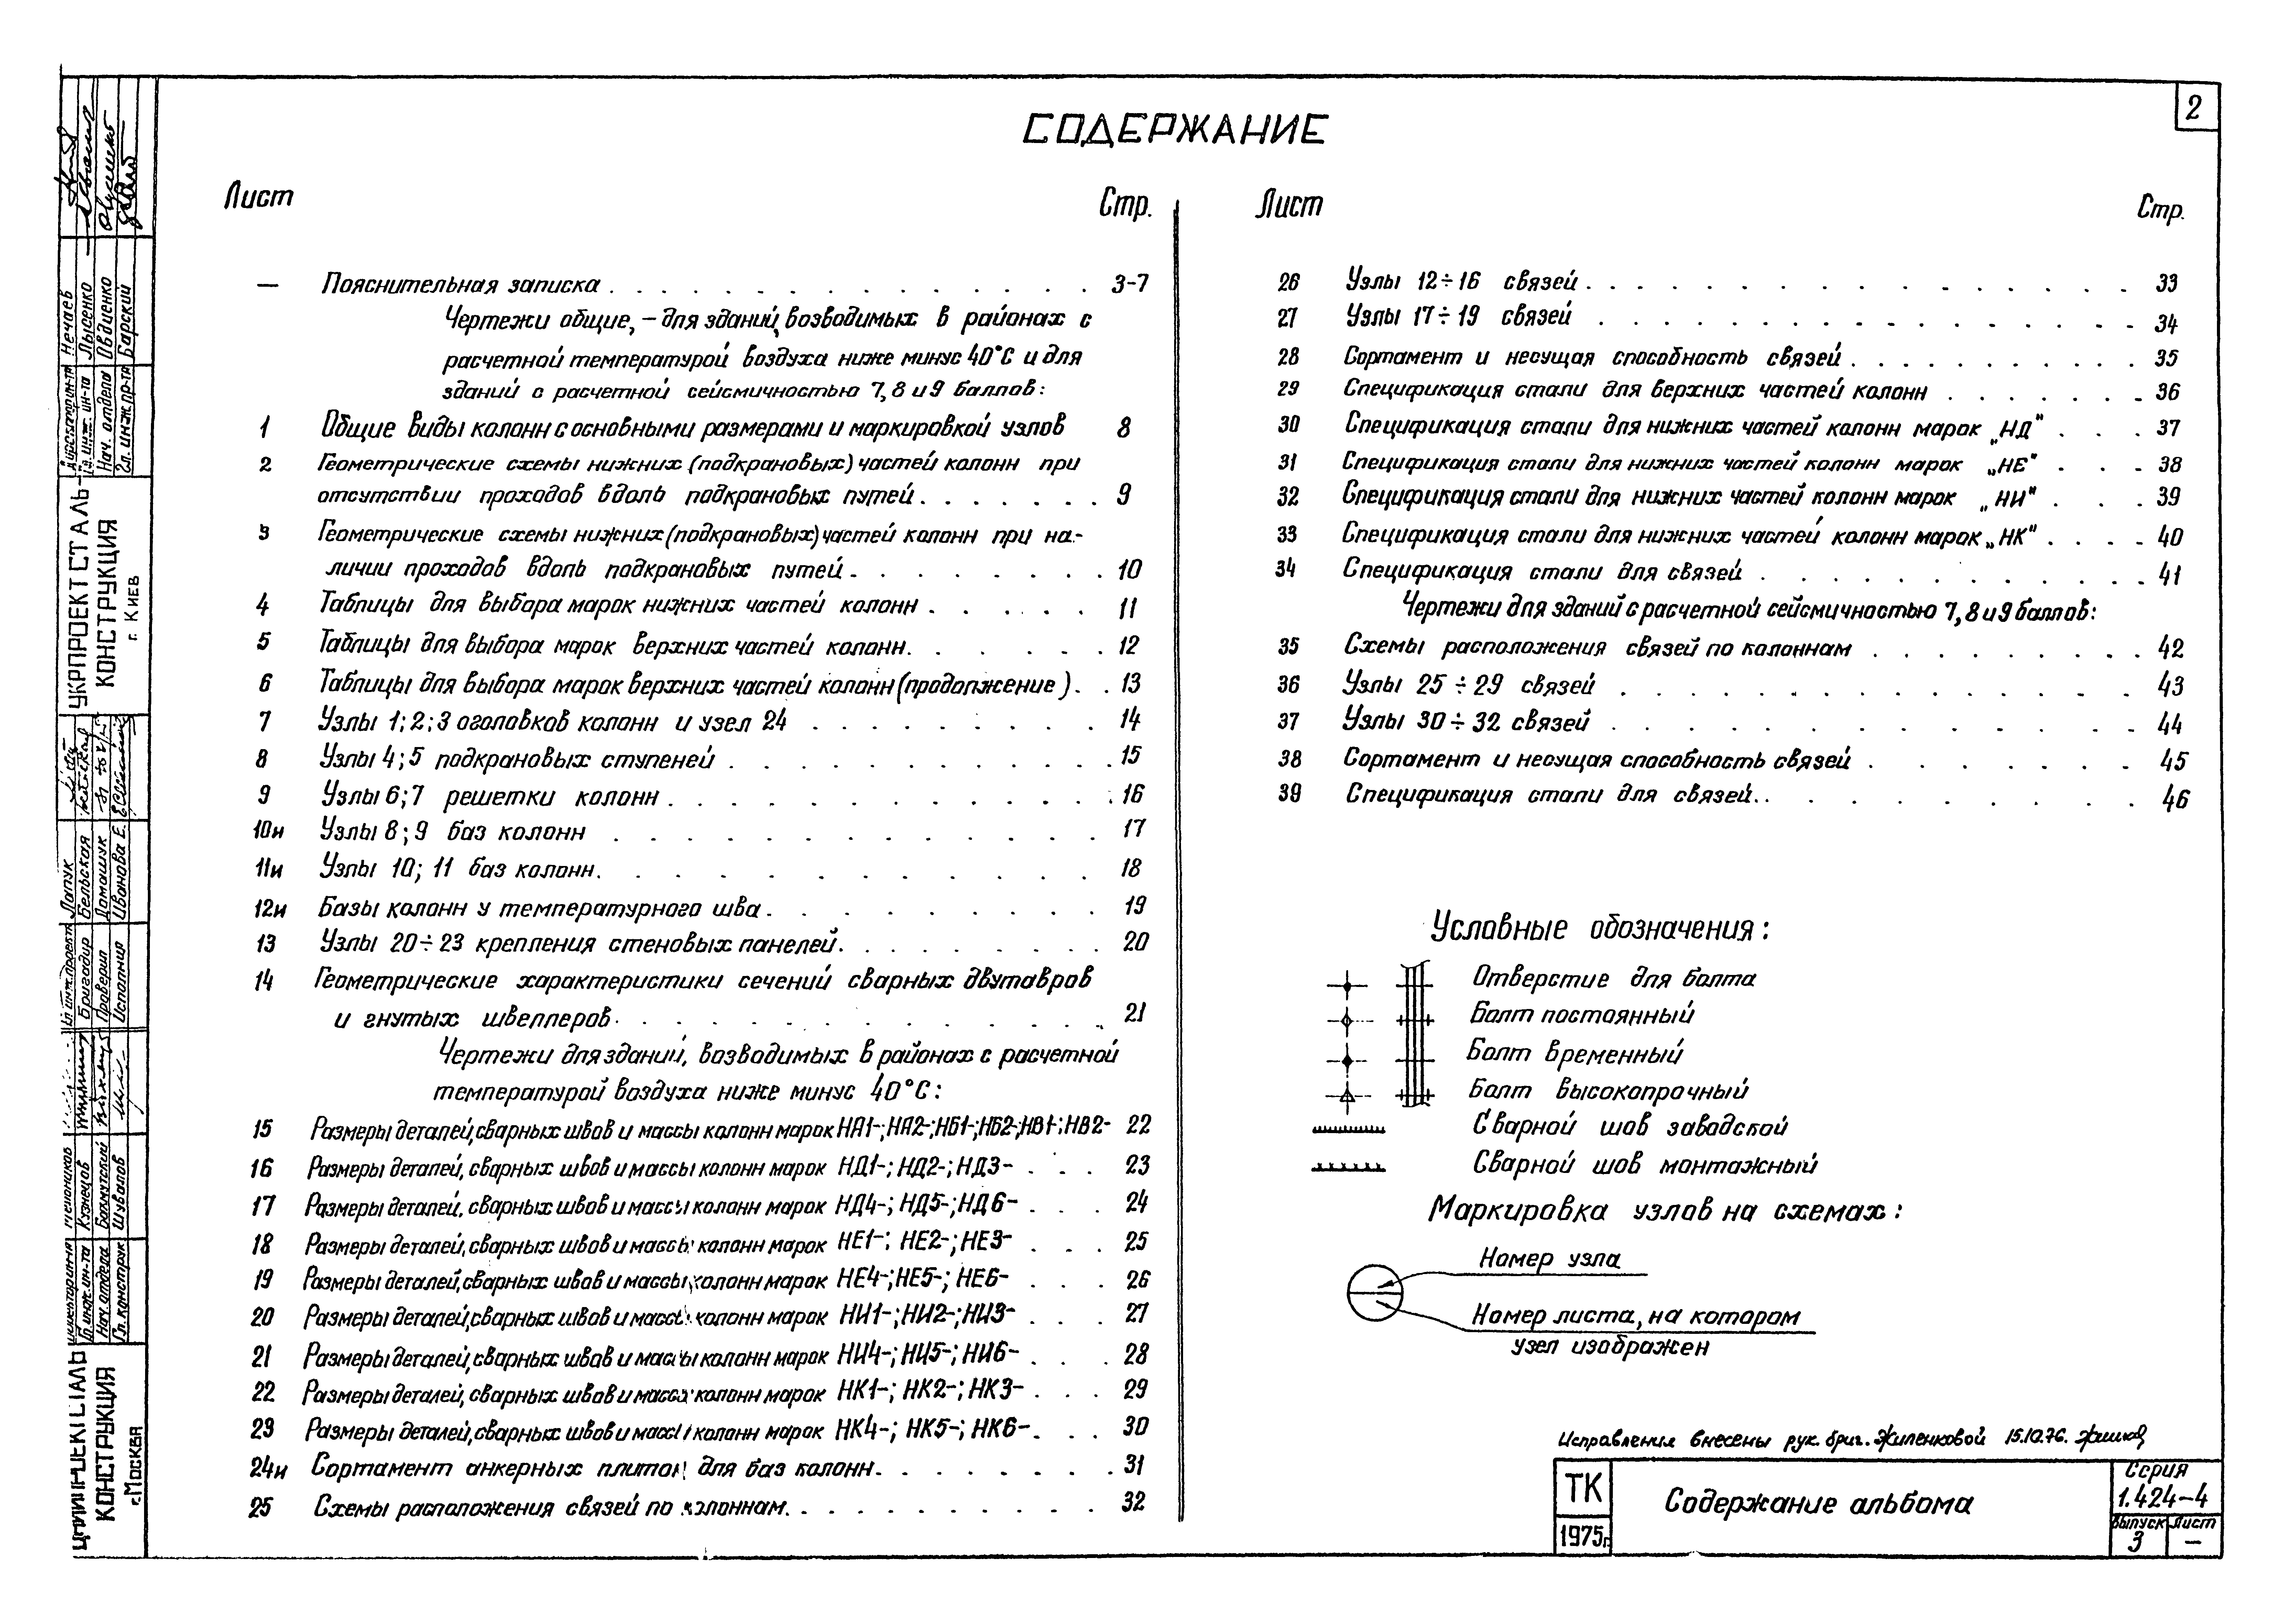 2
СОДЕРЖАНИЕ
Лист Стр.
— Пояснительная записка 3-7
Чертежи общие, – для зданий, возводимых в районах с
расчетной температурой воздуха ниже минус 40°С и для
зданий с расчетной сейсмичностью 7, 8 и 9 баллов:
1 Общие виды колонн с основными размерами и маркировкой узлов 8
2 Геометрические схемы нижних (подкрановых) частей колонн при
отсутствии проходов вдоль подкрановых путей 9
3 Геометрические схемы нижних (подкрановых) частей колонн при на-
личии проходов вдоль подкрановых путей 10
4 Таблицы для выбора марок нижних частей колонн 11
5 Таблицы для выбора марок верхних частей колонн 12
6 Таблицы для выбора марок верхних частей колонн (продолжение) 13
7 Узлы 1; 2; 3 оголовков колонн и узел 24 14
8 Узлы 4; 5 подкрановых ступеней 15
9 Узлы 6; 7 решетки колонн 16
10и Узлы 8; 9 баз колонн 17
11и Узлы 10; 11 баз колонн 18
12и Базы колонн у температурного шва 19
13 Узлы 20÷23 крепления стеновых панелей 20
14 Геометрические характеристики сечений сварных двутавров
и гнутых швеллеров 21
Чертежи для зданий, возводимых в районах с расчетной
температурой воздуха ниже минус 40°С:
15 Размеры деталей, сварных швов и массы колонн марок НА1-; НА2-; НБ1-; НБ2-; НВ1-; НВ2- 22
16 Размеры деталей, сварных швов и массы колонн марок НД1-; НД2-; НД3- 23
17 Размеры деталей, сварных швов и массы колонн марок НД4-; НД5-; НД6- 24
18 Размеры деталей, сварных швов и массы колонн марок НЕ1-; НЕ2-; НЕ3- 25
19 Размеры деталей, сварных швов и массы колонн марок НЕ4-; НЕ5-; НЕ6- 26
20 Размеры деталей, сварных швов и массы колонн марок НИ1-; НИ2-; НИ3- 27
21 Размеры деталей, сварных швов и массы колонн марок НИ4-; НИ5-; НИ6- 28
22 Размеры деталей, сварных швов и массы колонн марок НК1-; НК2-; НК3- 29
23 Размеры деталей, сварных швов и массы колонн марок НК4-; НК5-; НК6- 30
24и Сортамент анкерных плиток для баз колонн 31
25 Схемы расположения связей по колоннам 32
Лист Стр.
26 Узлы 12÷16 связей 33
27 Узлы 17÷19 связей 34
28 Сортамент и несущая способность связей 35
29 Спецификация стали для верхних частей колонн 36
30 Спецификация стали для нижних частей колонн марок „НД" 37
31 Спецификация стали для нижних частей колонн марок „НЕ" 38
32 Спецификация стали для нижних частей колонн марок „НИ" 39
33 Спецификация стали для нижних частей колонн марок „НК" 40
34 Спецификация стали для связей 41
Чертежи для зданий с расчетной сейсмичностью 7, 8 и 9 баллов:
35 Схемы расположения связей по колоннам 42
36 Узлы 25÷29 связей 43
37 Узлы 30÷32 связей 44
38 Сортамент и несущая способность связей 45
39 Спецификация стали для связей 46
Условные обозначения:
Отверстие для болта
Болт постоянный
Болт временный
Болт высокопрочный
Сварной шов заводской
Сварной шов монтажный
Маркировка узлов на схемах:
Номер узла
Номер листа, на котором
узел изображен
Исправления внесены рук. бриг. Жиленковой 15.10.76.
ТК
1975г.
Содержание альбома
Серия
1.424-4
Выпуск Лист
3 —
УКРПРОЕКТСТАЛЬ-
КОНСТРУКЦИЯ
г. Киев
Директор ин-та Нечаев
Гл. инж. ин-та Лысенко
Нач. отдела Овдиенко
Гл. инж. пр-та Барский
Гл. инж. проекта Лопук
Бригадир Бельская
Проверил Домашук
Исполнил Иванова Е.
КОНСТРУКЦИЯ
г. Москва
Директор ин-та Мельников
Гл. инж. ин-та Кузнецов
Нач. отдела Бахмутский
Гл. конструк. Шувалов